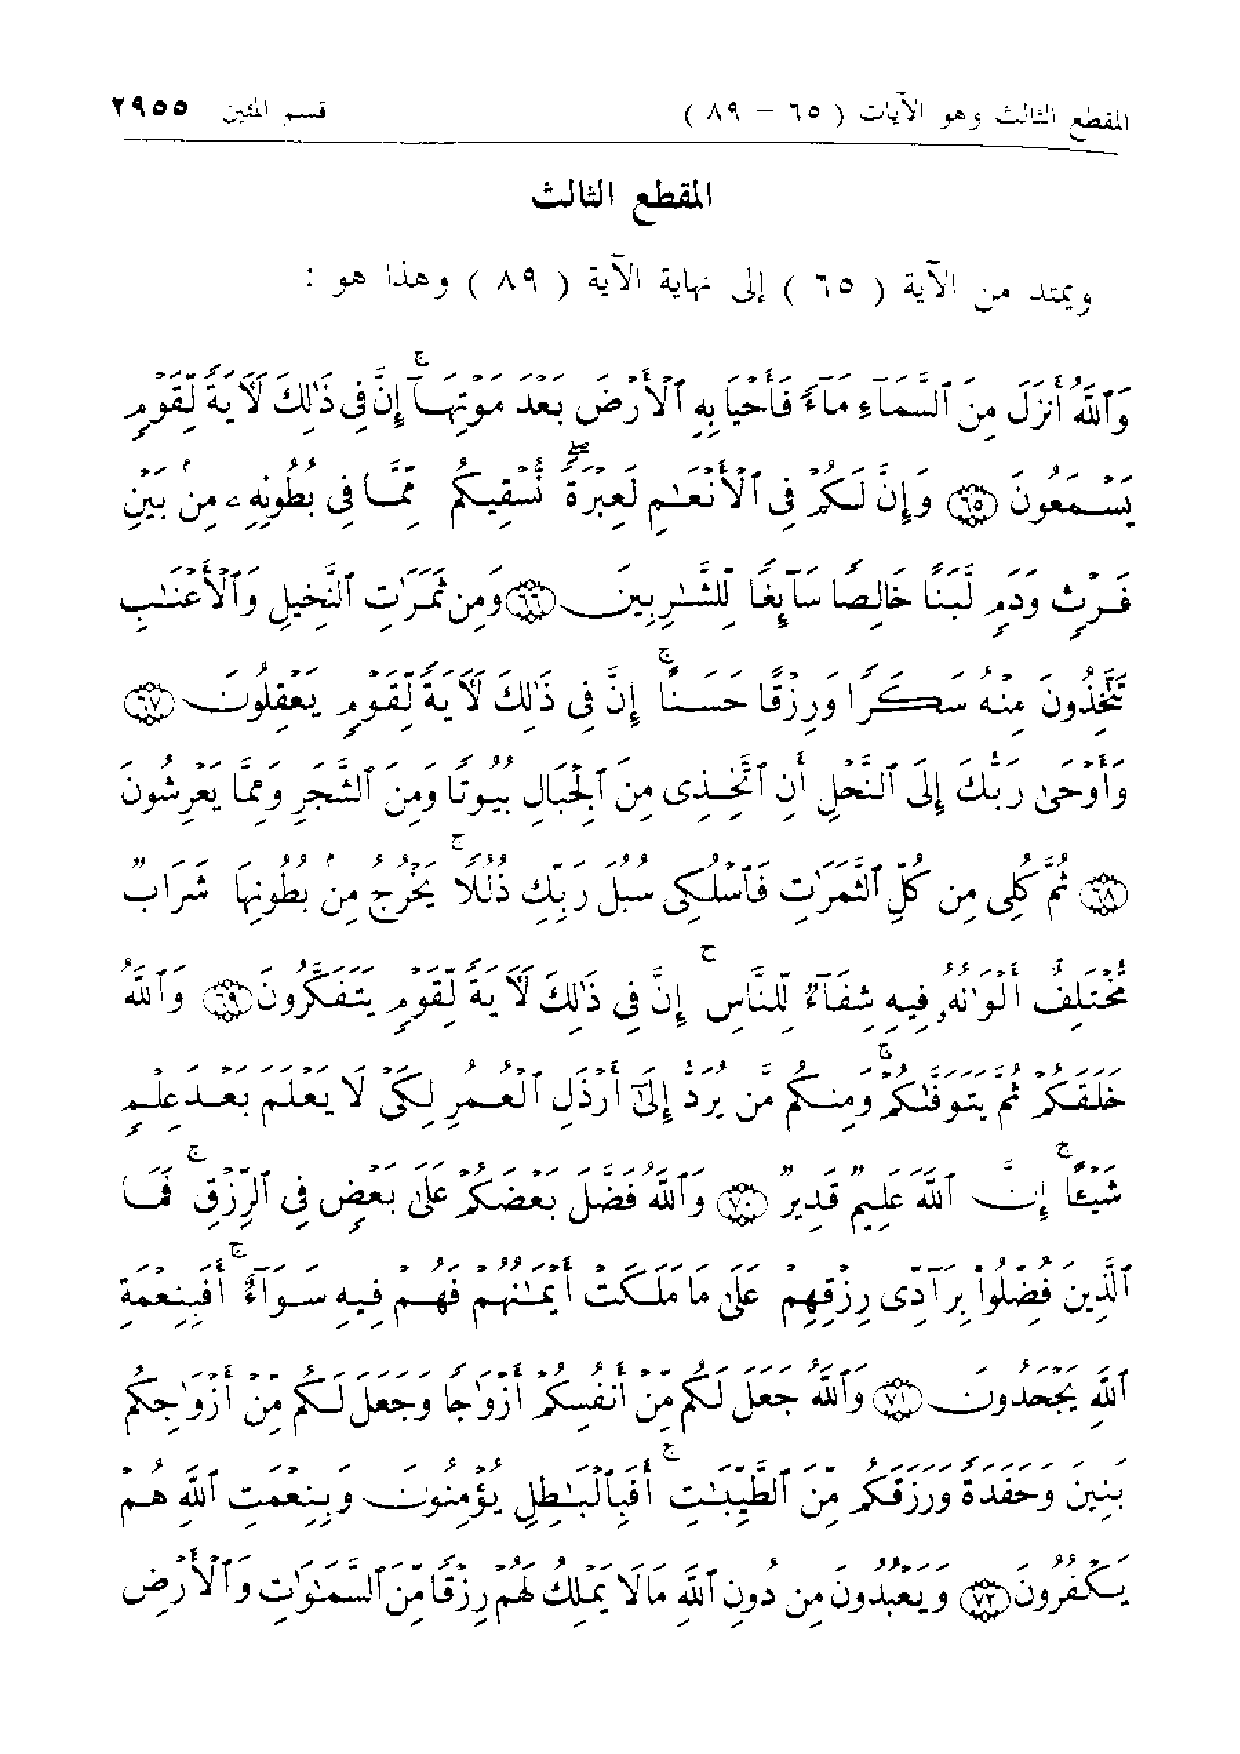 المقطع الثالث وهو الآيات ( ٦٥ – ٨٩ ) قسم المئين ٢٩٥٥
المقطع الثالث
ويمتد من الآية ( ٦٥ ) إلى نهاية الآية ( ٨٩ ) وهذا هو :
وَٱللَّهُ أَنزَلَ مِنَ ٱلسَّمَآءِ مَآءً فَأَحْيَا بِهِ ٱلْأَرْضَ بَعْدَ مَوْتِهَآ ۚ إِنَّ فِى ذَٰلِكَ لَآيَةً لِّقَوْمٍ
يَسْمَعُونَ ۝٦٥ وَإِنَّ لَكُمْ فِى ٱلْأَنْعَٰمِ لَعِبْرَةً ۖ نُّسْقِيكُم مِّمَّا فِى بُطُونِهِۦ مِنۢ بَيْنِ
فَرْثٍ وَدَمٍ لَّبَنًا خَالِصًا سَآئِغًا لِّلشَّٰرِبِينَ ۝٦٦ وَمِن ثَمَرَٰتِ ٱلنَّخِيلِ وَٱلْأَعْنَٰبِ
تَتَّخِذُونَ مِنْهُ سَكَرًا وَرِزْقًا حَسَنًا ۗ إِنَّ فِى ذَٰلِكَ لَآيَةً لِّقَوْمٍ يَعْقِلُونَ ۝٦٧
وَأَوْحَىٰ رَبُّكَ إِلَى ٱلنَّحْلِ أَنِ ٱتَّخِذِى مِنَ ٱلْجِبَالِ بُيُوتًا وَمِنَ ٱلشَّجَرِ وَمِمَّا يَعْرِشُونَ
۝٦٨ ثُمَّ كُلِى مِن كُلِّ ٱلثَّمَرَٰتِ فَٱسْلُكِى سُبُلَ رَبِّكِ ذُلُلًا ۚ يَخْرُجُ مِنۢ بُطُونِهَا شَرَابٌ
مُّخْتَلِفٌ أَلْوَٰنُهُۥ فِيهِ شِفَآءٌ لِّلنَّاسِ ۗ إِنَّ فِى ذَٰلِكَ لَآيَةً لِّقَوْمٍ يَتَفَكَّرُونَ ۝٦٩ وَٱللَّهُ
خَلَقَكُمْ ثُمَّ يَتَوَفَّىٰكُمْ ۚ وَمِنكُم مَّن يُرَدُّ إِلَىٰٓ أَرْذَلِ ٱلْعُمُرِ لِكَىْ لَا يَعْلَمَ بَعْدَ عِلْمٍ
شَيْـًٔا ۚ إِنَّ ٱللَّهَ عَلِيمٌ قَدِيرٌ ۝٧٠ وَٱللَّهُ فَضَّلَ بَعْضَكُمْ عَلَىٰ بَعْضٍ فِى ٱلرِّزْقِ ۚ فَمَا
ٱلَّذِينَ فُضِّلُوا۟ بِرَآدِّى رِزْقِهِمْ عَلَىٰ مَا مَلَكَتْ أَيْمَٰنُهُمْ فَهُمْ فِيهِ سَوَآءٌ ۚ أَفَبِنِعْمَةِ
ٱللَّهِ يَجْحَدُونَ ۝٧١ وَٱللَّهُ جَعَلَ لَكُم مِّنْ أَنفُسِكُمْ أَزْوَٰجًا وَجَعَلَ لَكُم مِّنْ أَزْوَٰجِكُم
بَنِينَ وَحَفَدَةً وَرَزَقَكُم مِّنَ ٱلطَّيِّبَٰتِ ۚ أَفَبِٱلْبَٰطِلِ يُؤْمِنُونَ وَبِنِعْمَتِ ٱللَّهِ هُمْ
يَكْفُرُونَ ۝٧٢ وَيَعْبُدُونَ مِن دُونِ ٱللَّهِ مَا لَا يَمْلِكُ لَهُمْ رِزْقًا مِّنَ ٱلسَّمَٰوَٰتِ وَٱلْأَرْضِ